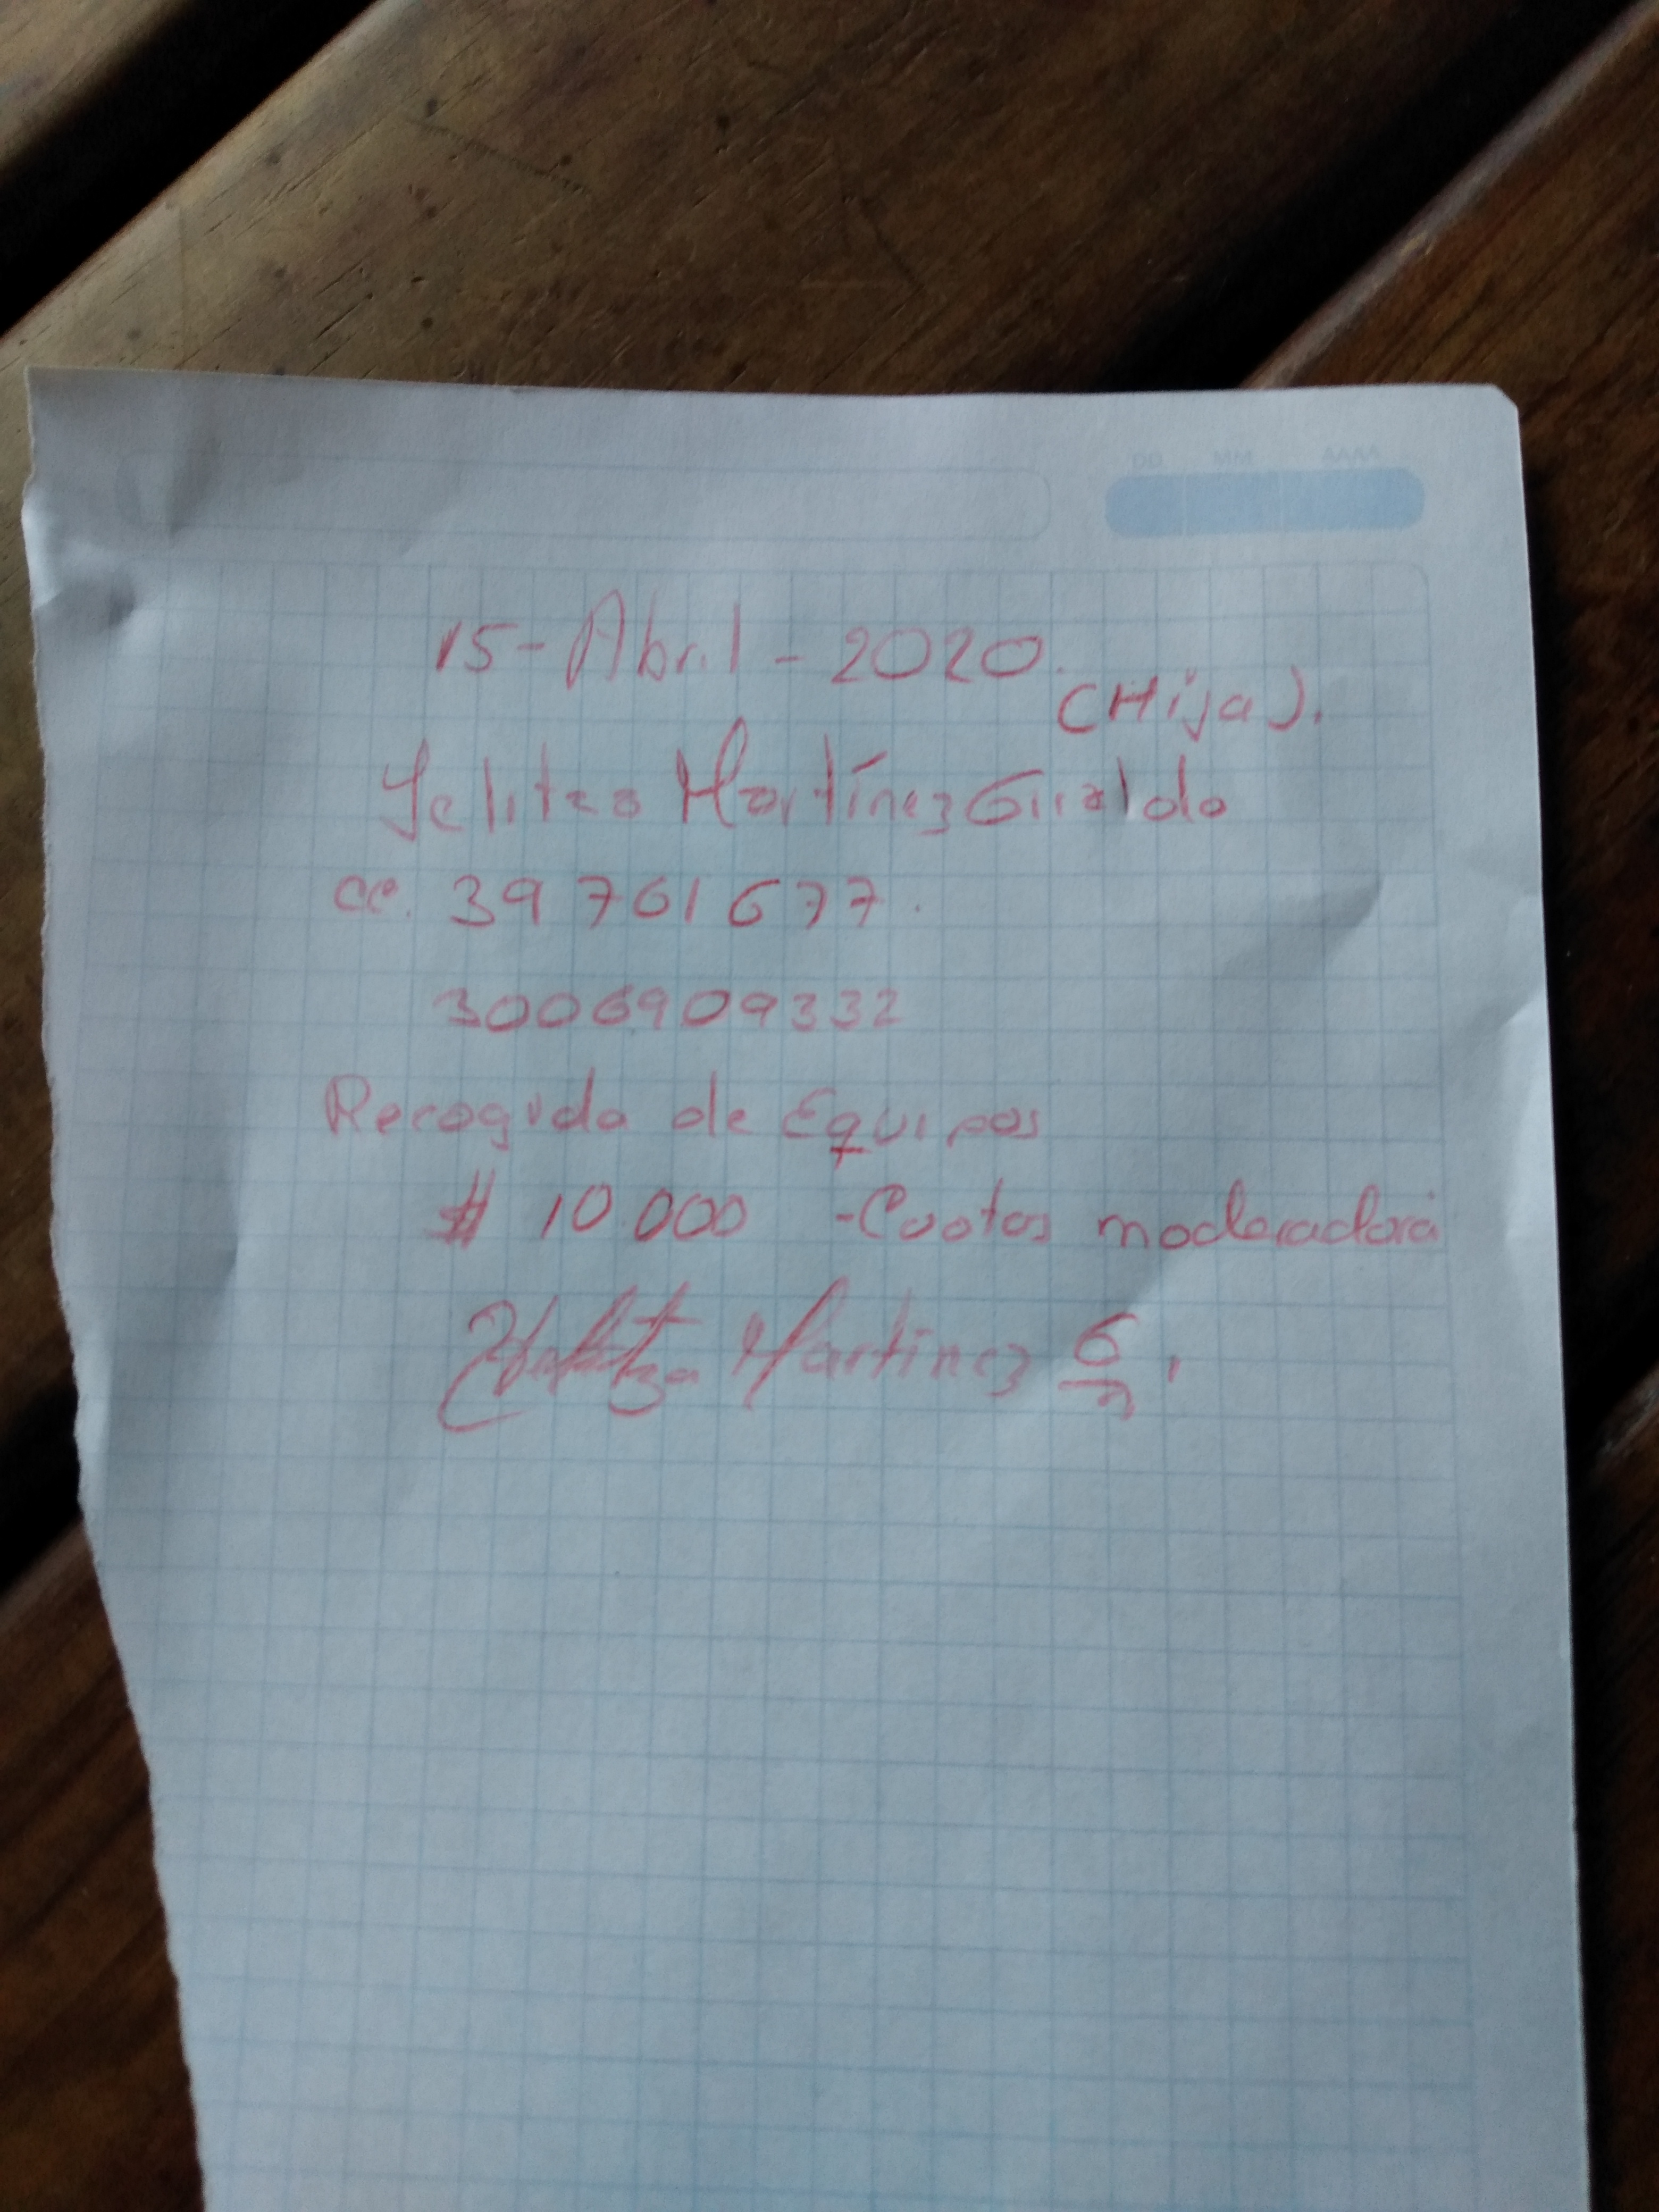 DD MM AAAA
15-Abril-2020.
(Hija).
Yelitza Martínez Giraldo
cc. 39 761 677.
3006909332
Recogida de Equipos
$ 10.000 -Cuotas moderadora
Yelitza Martínez G